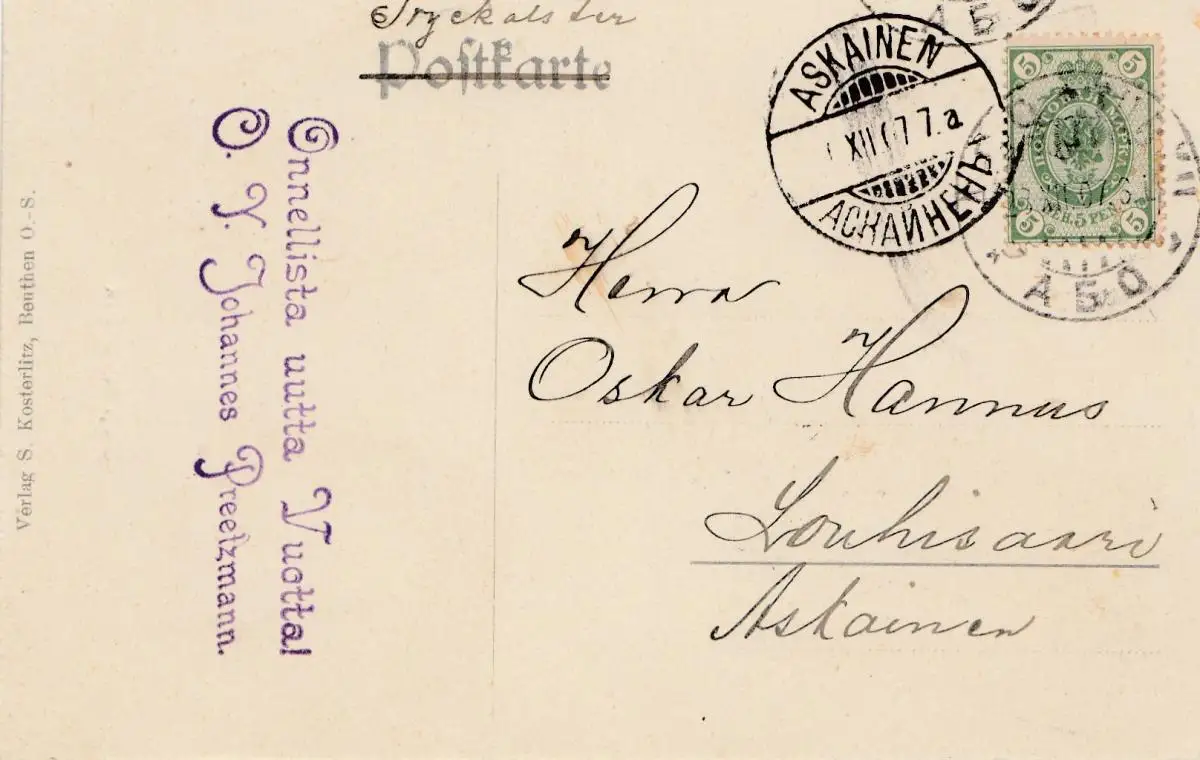 Postkarte
Onnellista uutta Vuotta!
O. Y. Johannes Preetzmann.
Verlag S. Kosterlitz, Beuthen O.-S.
ASKAINEN
XII 07 7.a
АСКАЙНЕНЪ
АБО
АБО
5 5
5 5
Herra
Oskar Hannus
Louhisaari
Askainen